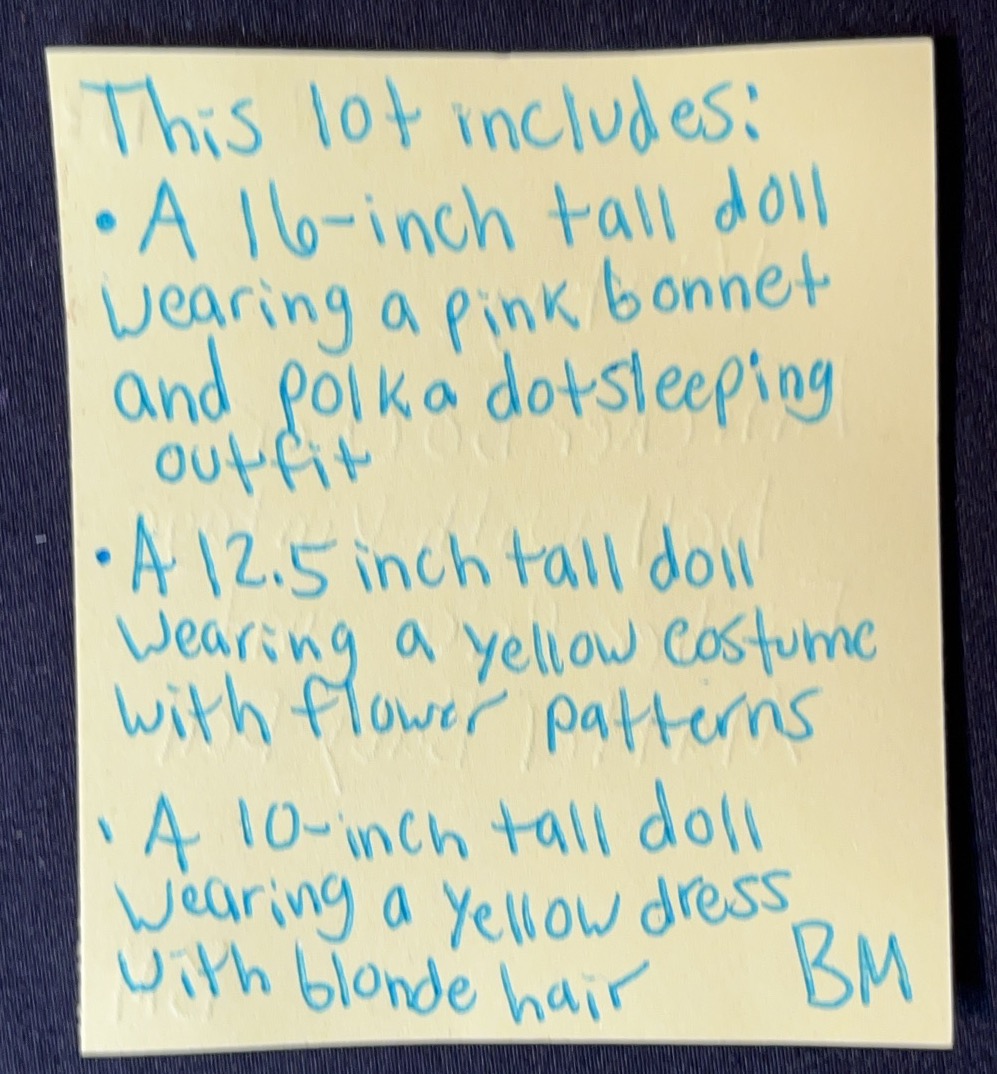 This lot includes:
• A 16-inch tall doll
wearing a pink bonnet
and polka dot sleeping
outfit
• A 12.5 inch tall doll
wearing a yellow costume
with flower patterns
• A 10-inch tall doll
wearing a yellow dress
with blonde hair
BM